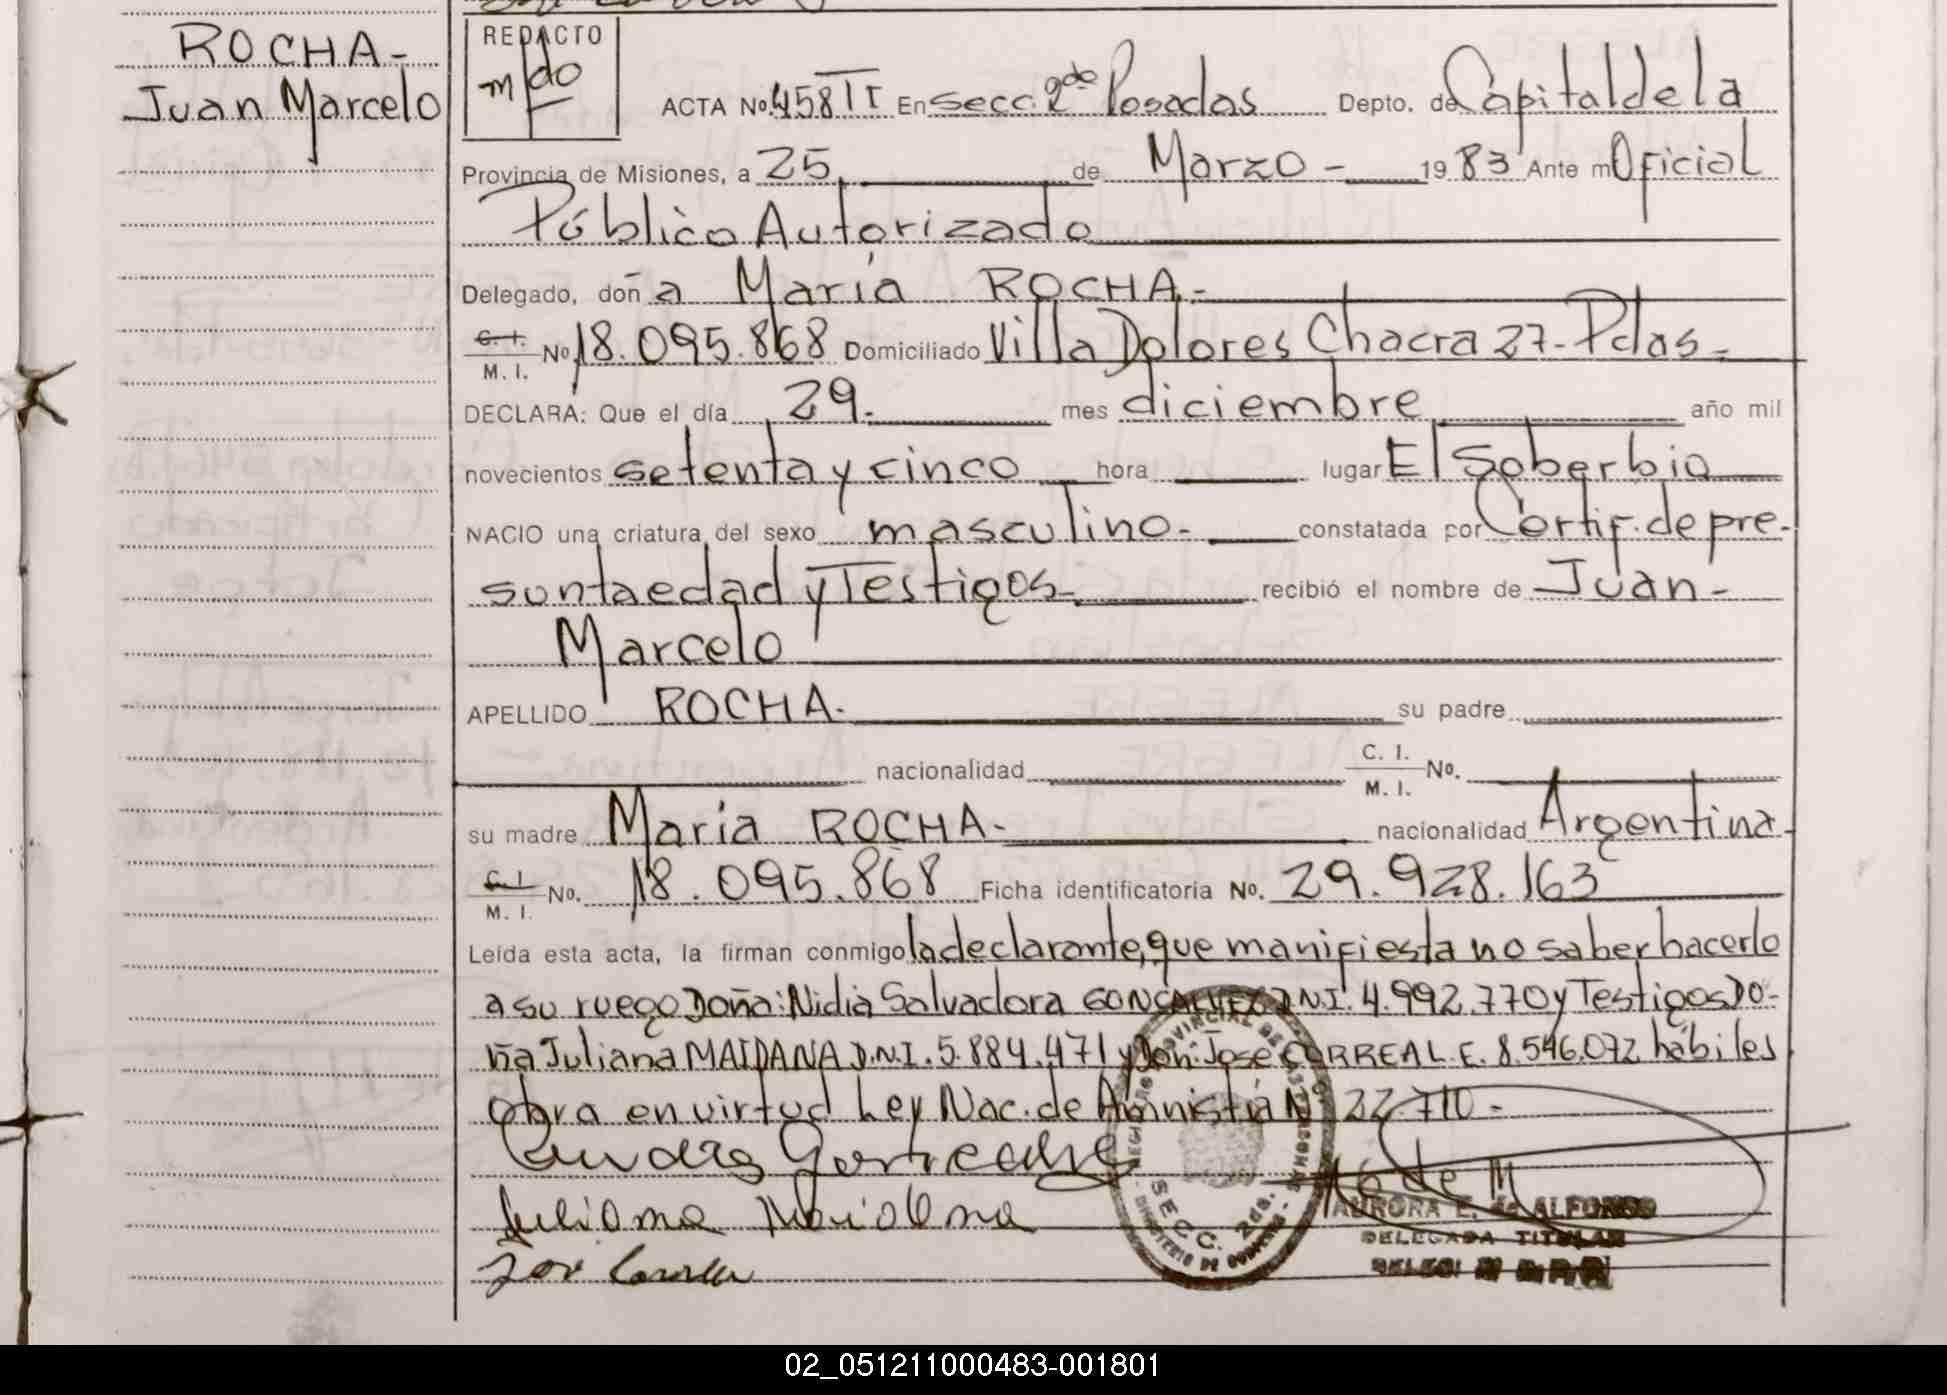 ROCHA-
Juan Marcelo
REDACTO
ACTA No. 458 II En secc. 2da Posadas Depto. de Capital de la
Provincia de Misiones, a 25 de Marzo - 1983 Ante mi Oficial
Público Autorizado
Delegado, doña María ROCHA.-
C. I.
M. I. No. 18.095.868 Domiciliado Villa Dolores Chacra 27- Pdas-
DECLARA: Que el día 29. mes diciembre año mil
novecientos setenta y cinco hora lugar El Soberbio
NACIO una criatura del sexo masculino- constatada por Certif. de pre-
sunta edad y Testigos- recibió el nombre de Juan-
Marcelo
APELLIDO ROCHA- su padre
nacionalidad C. I. M. I. No.
su madre Maria ROCHA- nacionalidad Argentina-
C. I.
M. I. No. 18.095.868 Ficha identificatoria No. 29.928.163
Leída esta acta, la firman conmigo la declarante, que manifiesta no saber hacerlo
a su ruego Doña: Nidia Salvadora GONCALVEZ D.N.I. 4.992.770 y Testigos Do-
ña Juliana MAIDANA D.N.I. 5.884.471 y Don: José CORREA L.E. 8.546.072 hábiles
obra en virtud Ley Nac. de Amnistía Nº 22.710-
SECC. 2da.
AURORA E. de ALFONSO
DELEGADA TITULAR
02_051211000483-001801